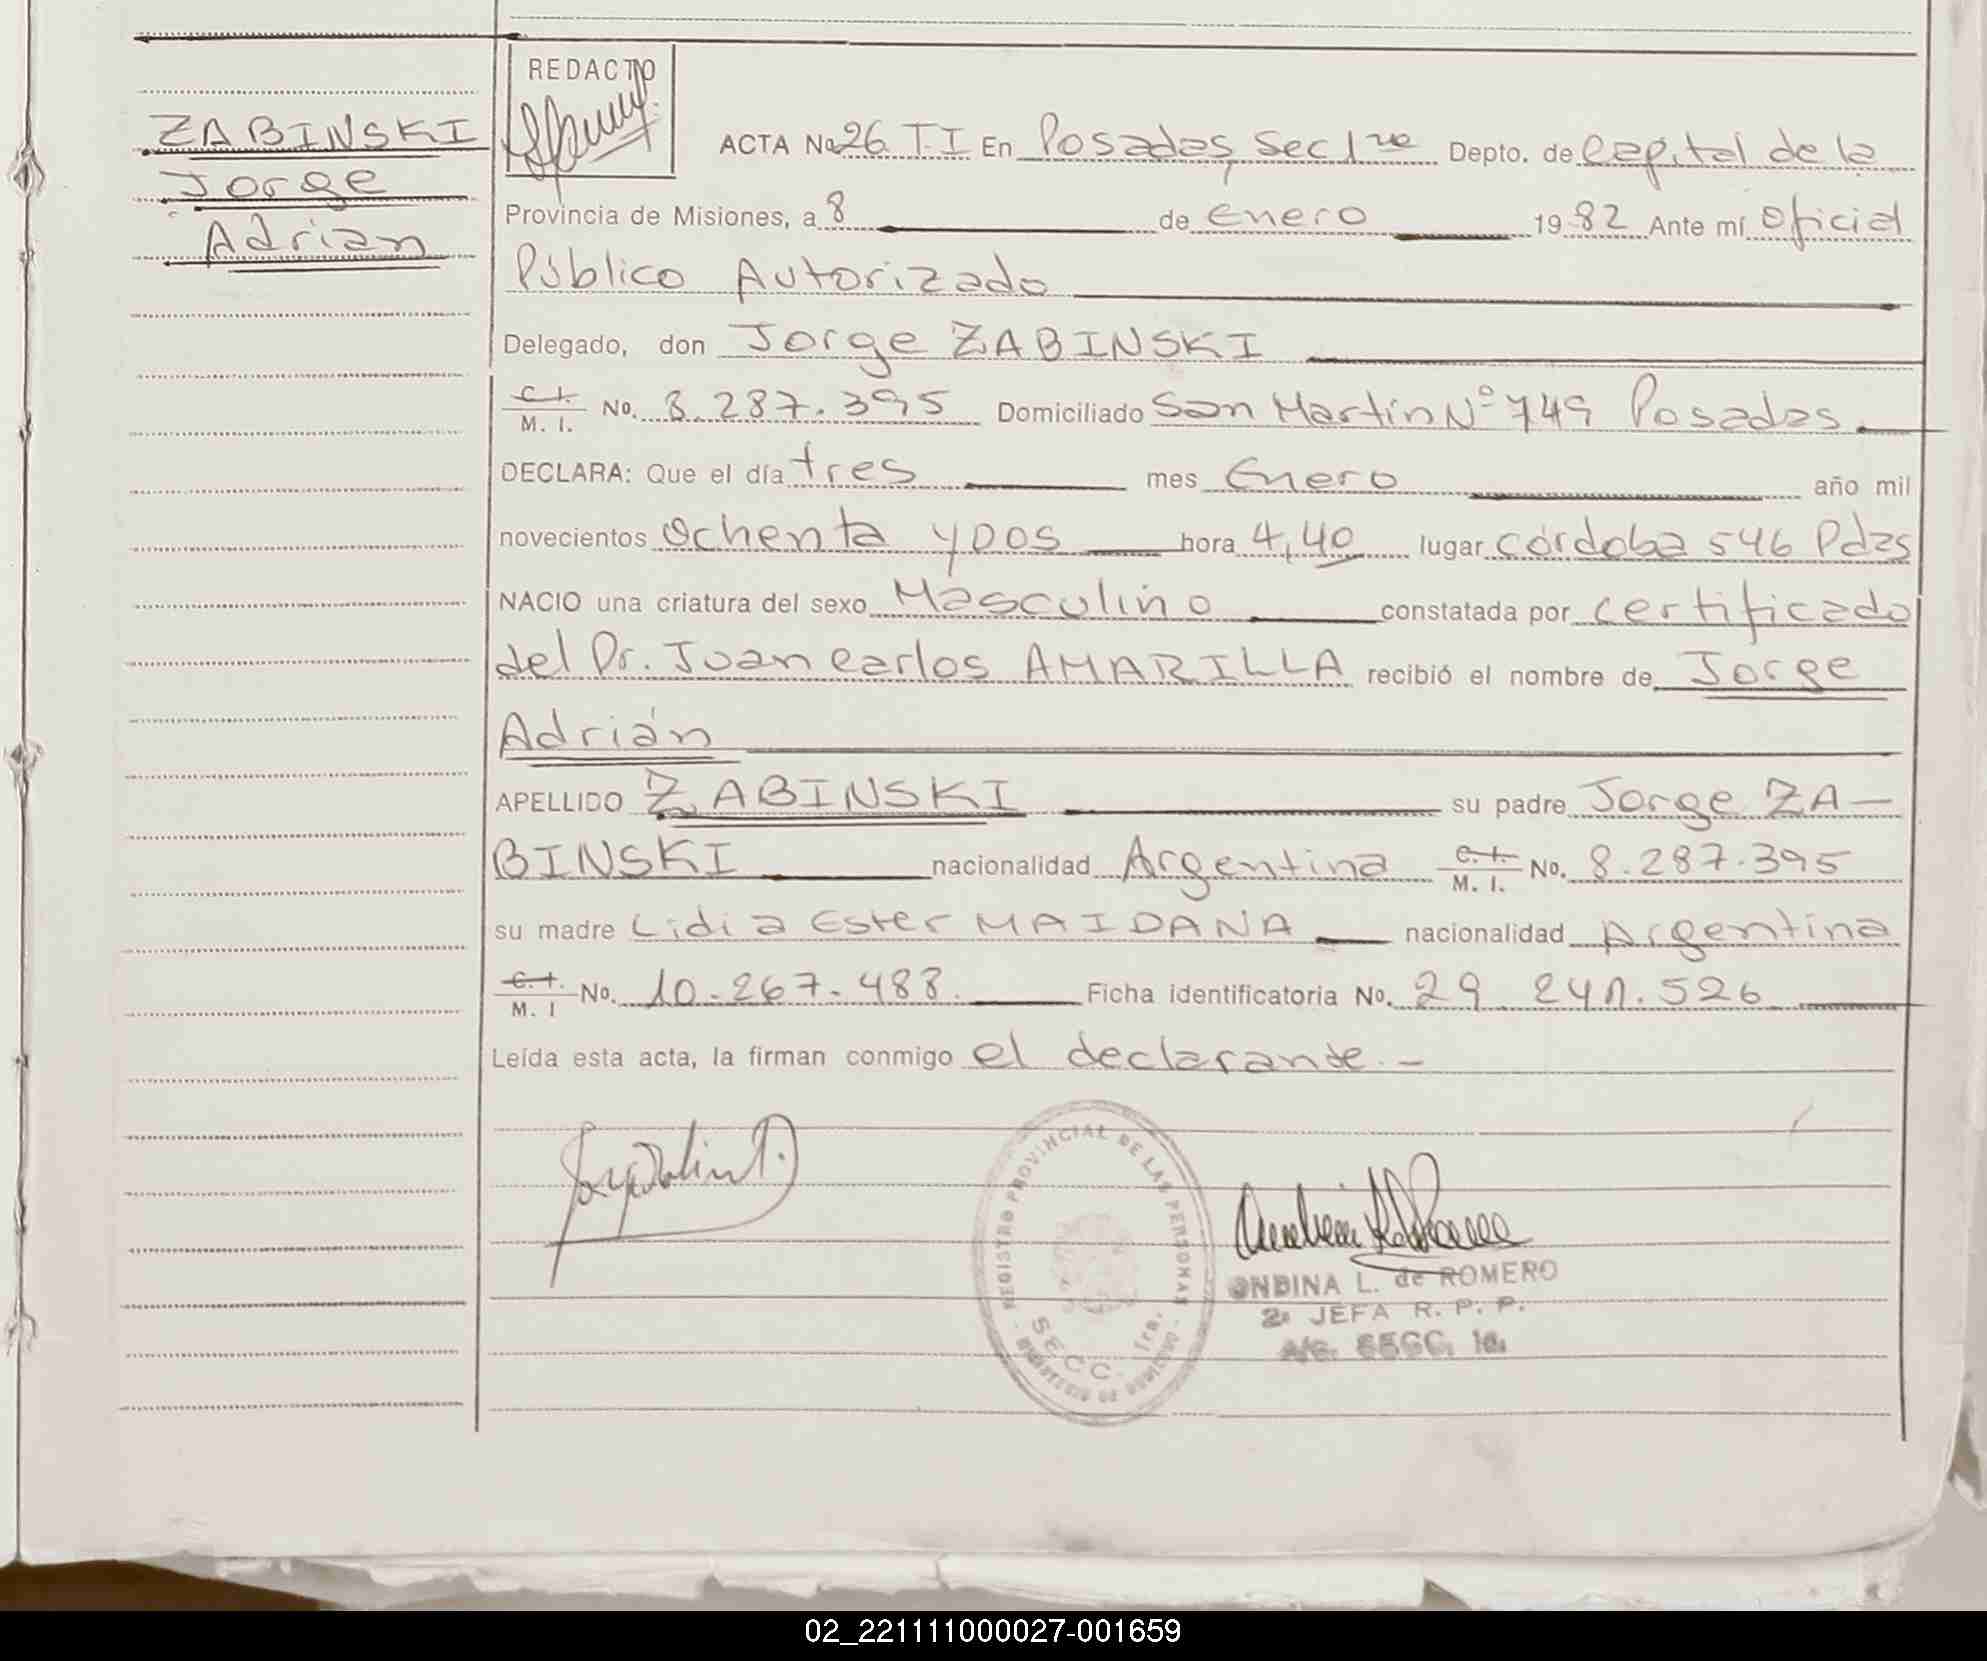 REDACTO
ZABINSKI
Jorge
Adrian
ACTA No 26 T.I En Posadas, Sec 1ra Depto. de Capital de la
Provincia de Misiones, a 8 de Enero 1982 Ante mí Oficial
Público Autorizado
Delegado, don Jorge ZABINSKI
C.I. M. I. No. 8.287.395 Domiciliado San Martín Nº 749 Posadas
DECLARA: Que el día tres mes Enero año mil
novecientos Ochenta y DOS hora 4,40 lugar córdoba 546 Pdas
NACIO una criatura del sexo Masculino constatada por certificado
del Dr. Juan Carlos AMARILLA recibió el nombre de Jorge
Adrián
APELLIDO ZABINSKI su padre Jorge ZA-
BINSKI nacionalidad Argentina C.I. M. I. No. 8.287.395
su madre Lidia Ester MAIDANA nacionalidad Argentina
C.I. M. I No. 10.267.488 Ficha identificatoria No. 29 241.526
Leída esta acta, la firman conmigo el declarante.-
REGISTRO PROVINCIAL DE LAS PERSONAS
SECC. 1ra.
ONDINA L. de ROMERO
2a JEFA R. P. P.
A/C. SECC. 1a.
02_221111000027-001659